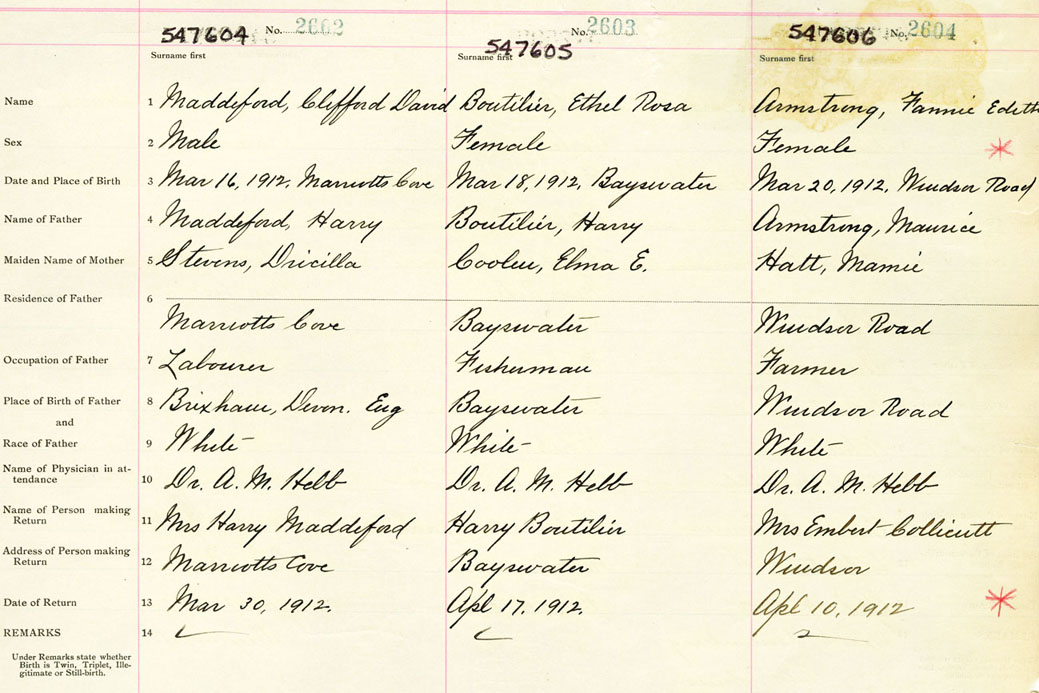 547604 No. 2602 547605 No. 2603 547606 No. 2604
Surname first Surname first Surname first
Name 1 Maddeford, Clifford David Boutilier, Ethel Rosa Armstrong, Fannie Edith
Sex 2 Male Female Female
Date and Place of Birth 3 Mar 16, 1912. Marriotts Cove Mar 18, 1912, Bayswater Mar 20, 1912, Windsor Road
Name of Father 4 Maddeford, Harry Boutilier, Harry Armstrong, Maurice
Maiden Name of Mother 5 Stevens, Dricilla Coolen, Elma E. Hatt, Mamie
Residence of Father 6
Marriotts Cove Bayswater Windsor Road
Occupation of Father 7 Labourer Fisherman Farmer
Place of Birth of Father 8 Brixham, Devon. Eng Bayswater Windsor Road
and
Race of Father 9 White White White
Name of Physician in at-
tendance 10 Dr. A. M. Hebb Dr. A. M. Hebb Dr. A. M. Hebb
Name of Person making
Return 11 Mrs Harry Maddeford Harry Boutilier Mrs Embert Collicutt
Address of Person making
Return 12 Marriotts Cove Bayswater Windsor
Date of Return 13 Mar 30, 1912. Apl 17. 1912. Apl 10, 1912
REMARKS 14
Under Remarks state whether
Birth is Twin, Triplet, Ille-
gitimate or Still-birth.